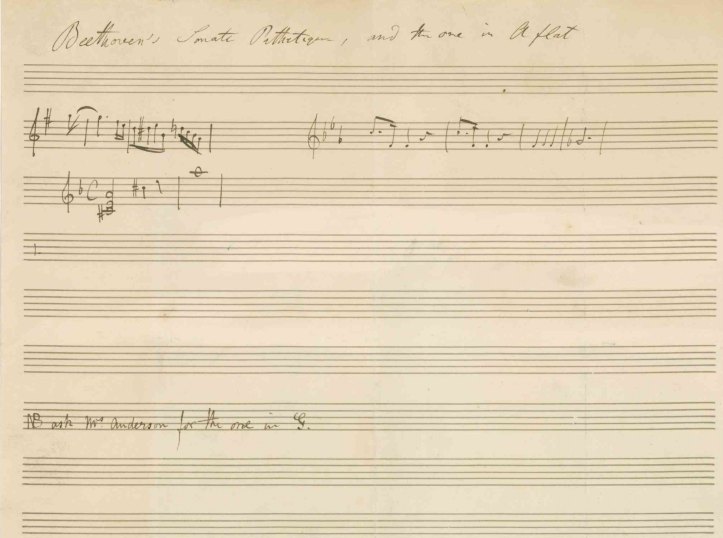 Beethoven's Sonate Pathetique, and the one in A flat
NB ask Mrs Anderson for the one in G.